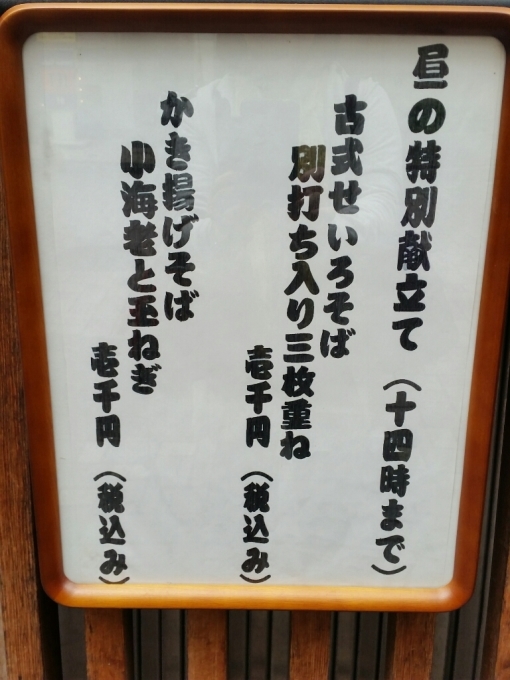 昼の特別献立て（十四時まで）
古式せいろそば
別打ち入り三枚重ね
壱千円（税込み）
かき揚げそば
小海老と玉ねぎ
壱千円（税込み）